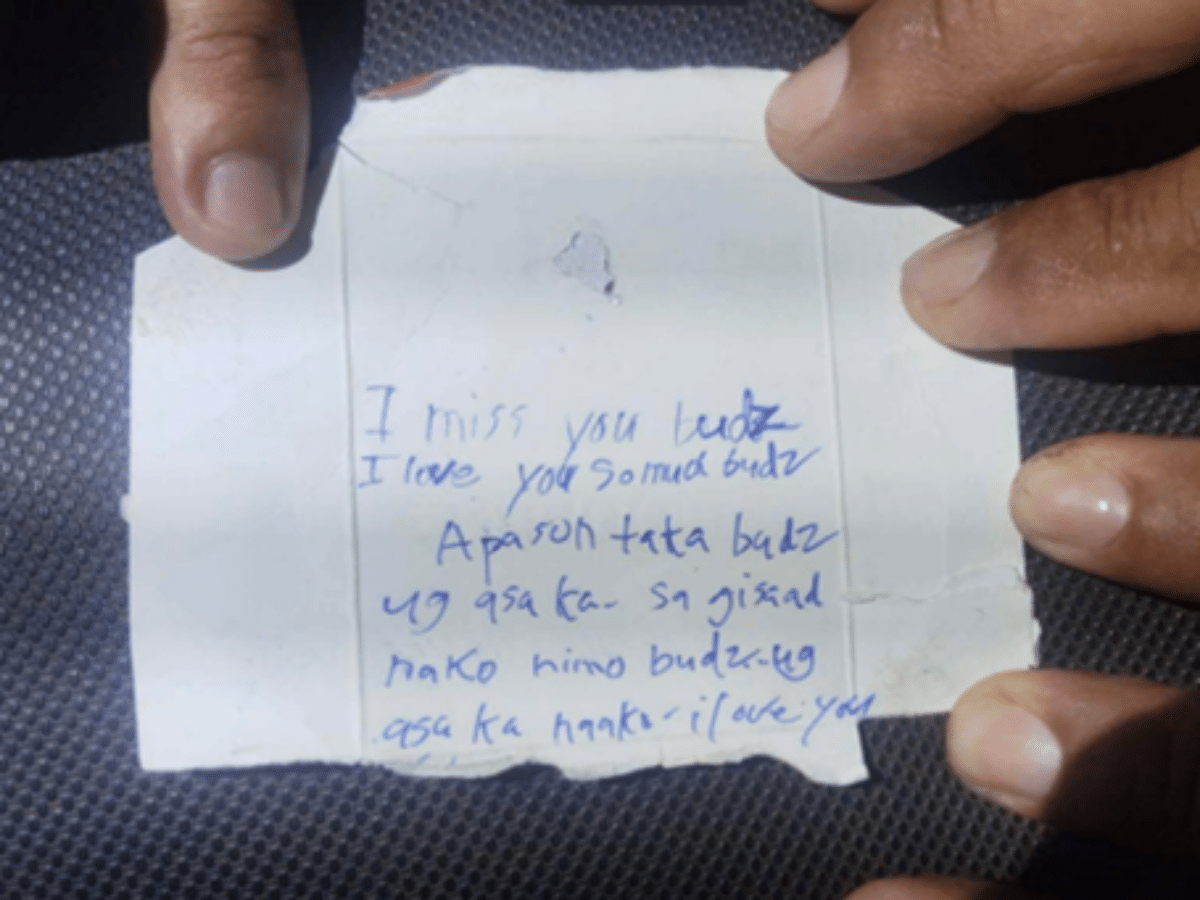 I miss you budz
I love you somuch budz
Apason tata budz
ug asa ka- sa gisaad
nako nimo budz-ug
asa ka naako-i love you